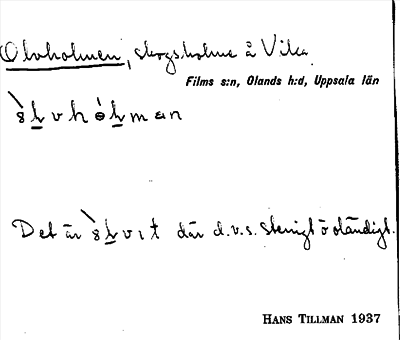 Olvholmen, skogsholme å Vika
Films s:n, Olands h:d, Uppsala län
Det är d.v.s. stenigt o oländigt.
HANS TILLMAN 1937